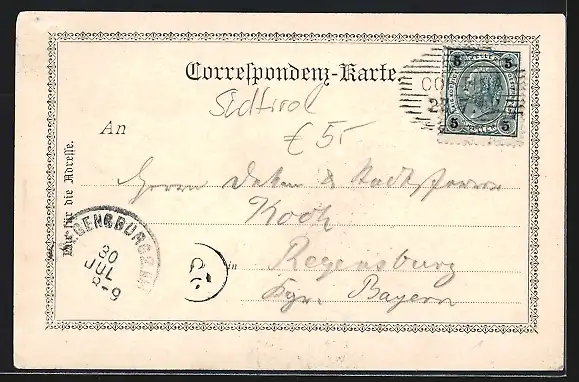 Correspondenz-Karte.
5 5
5 5
Südtirol
€ 5,-
An
Herrn Dekan & Stadtpfarrer
Koch
in Regensburg
Kgr. Bayern
Nur für die Adresse.
REGENSBURG
30
JUL
8-9